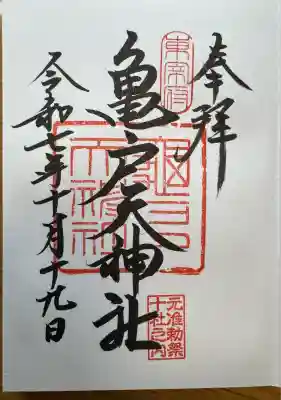 奉拝
東宰府
亀戸天神社
亀戸天神社
元准勅祭
十社之内
令和七年十月十九日